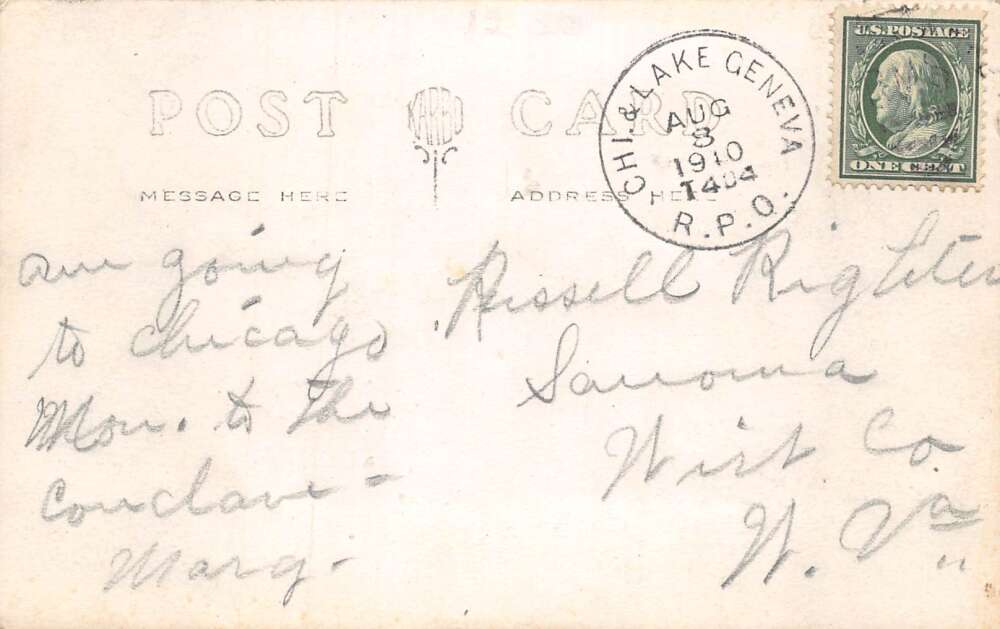 POST CARD
KRUXO
MESSAGE HERE
ADDRESS HERE
CHI. & LAKE GENEVA
AUG
8
1910
T404
R.P.O.
U.S. POSTAGE
ONE CENT
am going
to Chicago
Mon. to the
Conclave -
Marg -
Russell Righter
Sanoma
Wirt Co
W. Va